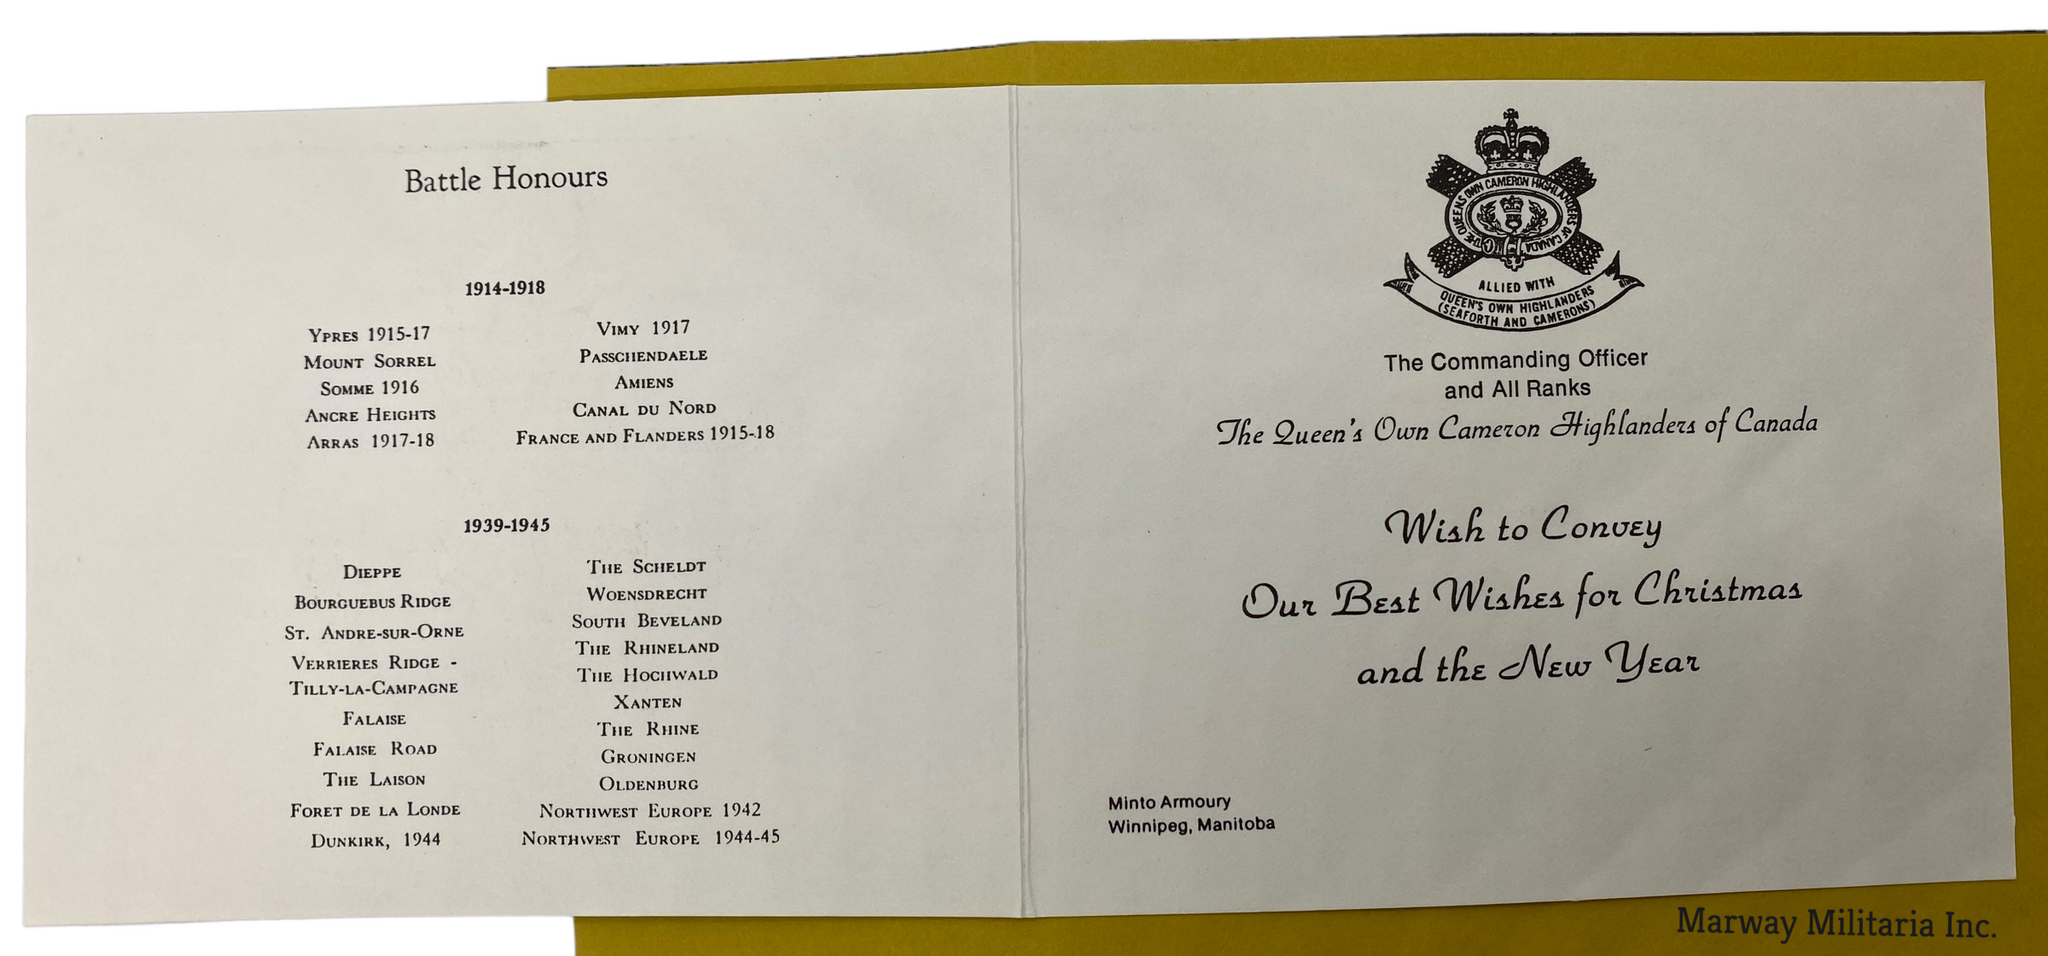 Battle Honours
1914-1918
YPRES 1915-17
MOUNT SORREL
SOMME 1916
ANCRE HEIGHTS
ARRAS 1917-18
VIMY 1917
PASSCHENDAELE
AMIENS
CANAL DU NORD
FRANCE AND FLANDERS 1915-18
1939-1945
DIEPPE
BOURGUEBUS RIDGE
ST. ANDRE-SUR-ORNE
VERRIERES RIDGE -
TILLY-LA-CAMPAGNE
FALAISE
FALAISE ROAD
THE LAISON
FORET DE LA LONDE
DUNKIRK, 1944
THE SCHELDT
WOENSDRECHT
SOUTH BEVELAND
THE RHINELAND
THE HOCHWALD
XANTEN
THE RHINE
GRONINGEN
OLDENBURG
NORTHWEST EUROPE 1942
NORTHWEST EUROPE 1944-45
THE QUEENS OWN CAMERON HIGHLANDERS OF CANADA
ALLIED WITH
QUEEN'S OWN HIGHLANDERS
(SEAFORTH AND CAMERONS)
The Commanding Officer
and All Ranks
The Queen's Own Cameron Highlanders of Canada
Wish to Convey
Our Best Wishes for Christmas
and the New Year
Minto Armoury
Winnipeg, Manitoba
Marway Militaria Inc.